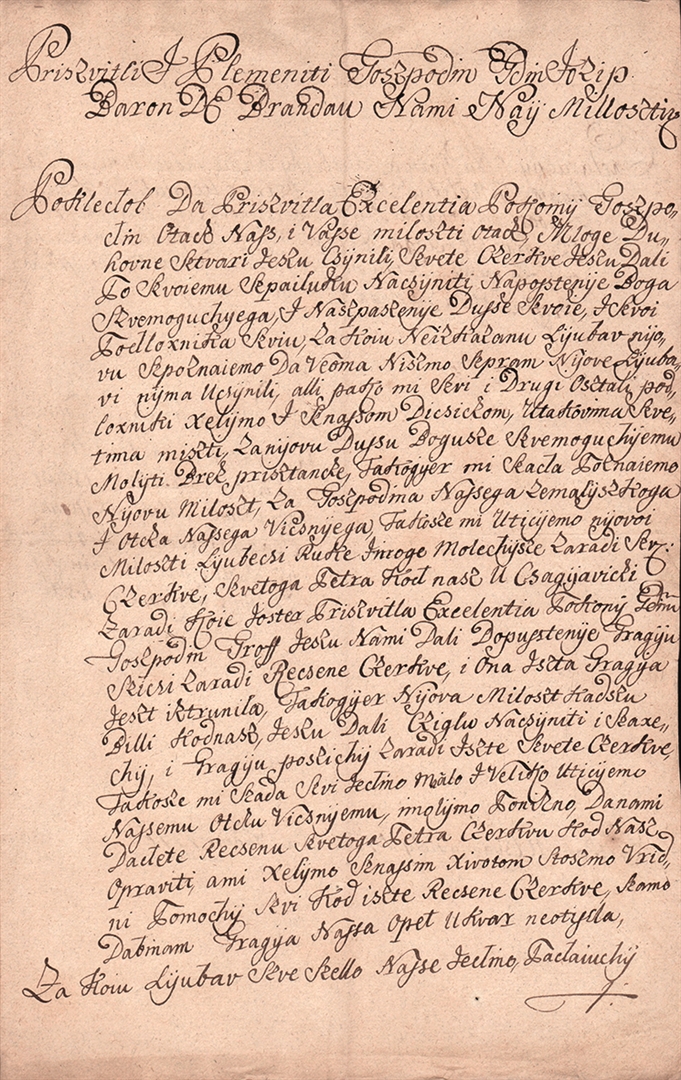 Priszvitli I Plemeniti Goszpodin Gdin Jozip
Baron DE Brandau Nami Nay Millosztiv
Poklecsob Da Priszvitla Excelentia Pokojnij Goszpo„
din Otacz Nass, i Vasse miloszti otacz, Mloge Du„
hovne Sztvari Jeszu Csijnili, Szvete Czerkve Jeszu Dali
Po Szvoiemu Szpailuku Nacsijniti, Naposstenije Boga
Szvemoguchyega, I Naszpaszenije Dusse Szvoie, I Szvoi
Podloxnika Szviu, za Koiu Neizkazanu Lijubav nijo„
vu Szpoznaiemo Da Veoma Niszmo Szpram Nijove Lijuba„
vi nijma Ucsijnili, alli pako mi Szvi i Drugi Osztali pod„
loxniki xelijmo I Sznassom Dicsickom, Utakovima Szve„
tima miszti, zanijovu Dussu Boguske Szvemoguchijemu
Molijti Brez prisztancka, Takogyer mi Szada Poznaiemo
Nijovu Miloszt, za Goszpodina Nassega zemalijszkoga
I Otcza Nassega Vicsnijega, Takose mi Uticijemo nijovoi
Miloszti Lijubechi Ruke Imoge Molechijsze zaradi Szv:
Czerkve, Szvetoga Petra Kod nasz U Csagijavicki
zaradi Koie Joster Priszvitla Excelentia Pokonij Gdin
Goszpodin Groff Jeszu Nami Dali Dopustenije Gragiju
Szichi zaradi Recsene Czerkve, i Ona Iszta Gragija
Jeszt iztrunila, Takogyer Nijova Miloszt Kadszu
Billi Kodnasz, Jeszu Dali Cziglu Nacsijniti i Szaxe„
chij, i Gragiju poszichij zaradi Iszte Szvete Czerkve,
Takoske mi Szada Szvi Jeszmo Malo I Veliko Uticijemo
Nassemu Otczu Vicsnijemu, molijmo Ponizno, Danami
Daszete Recsenu Szvetoga Petra Czerkvu Kod Nasz
Opraviti, ami xelijmo Sznassim xivotom Stoszmo Vrid„
ni Pomochij Szvi Kod iszte Recsene Czerkve, Szamo
Dabinam Gragija Nassa Opet Ukvar neotissla,
Za Koiu Lijubav Szve Szello Nasse Jeszmo, Facsaiuchij